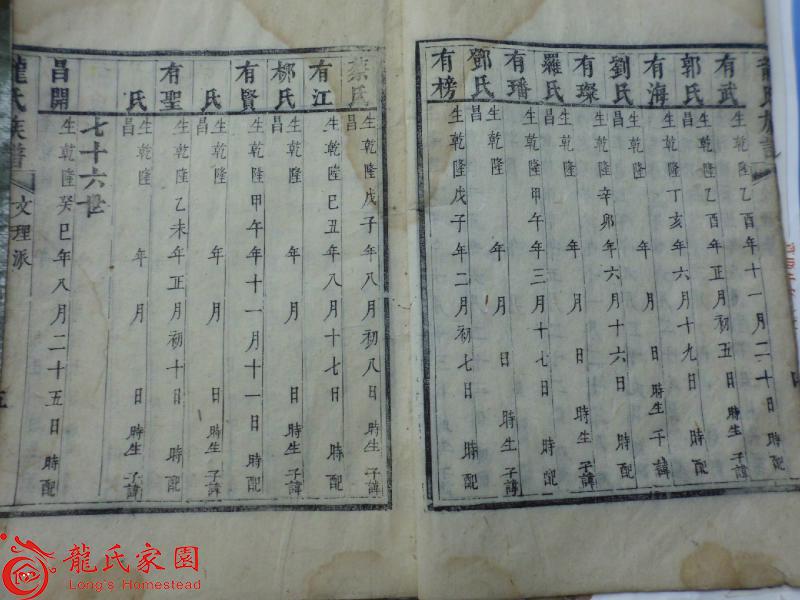 龍氏族譜
有武 生乾隆乙酉年十一月二十日 時配
郭氏 生乾隆乙酉年正月初五日 時生 子諱
有海 生乾隆丁亥年六月十九日 時配
劉氏 生乾隆 年 月 日 時生 子諱
有璨 生乾隆辛卯年六月十六日 時配
羅氏 昌 生乾隆 年 月 日 時生 子諱
有璠 生乾隆甲午年三月十七日 時配
鄧氏 昌 生乾隆 年 月 日 時生 子諱
有榜 生乾隆戊子年二月初七日 時配
蔡氏 昌 生乾隆戊子年八月初八日 時生 子諱
有江 生乾隆己丑年八月十七日 時配
柳氏 昌 生乾隆 年 月 日 時生 子諱
有賢 生乾隆甲午年十一月十一日 時配
氏 昌 生乾隆 年 月 日 時生 子諱
有聖 生乾隆乙未年正月初十日 時配
氏 昌 生乾隆 年 月 日 時生 子諱
七十六世
昌開 生乾隆癸巳年八月二十五日 時配
龍氏族譜 文理派 五
龍氏家園
Long's Homestead